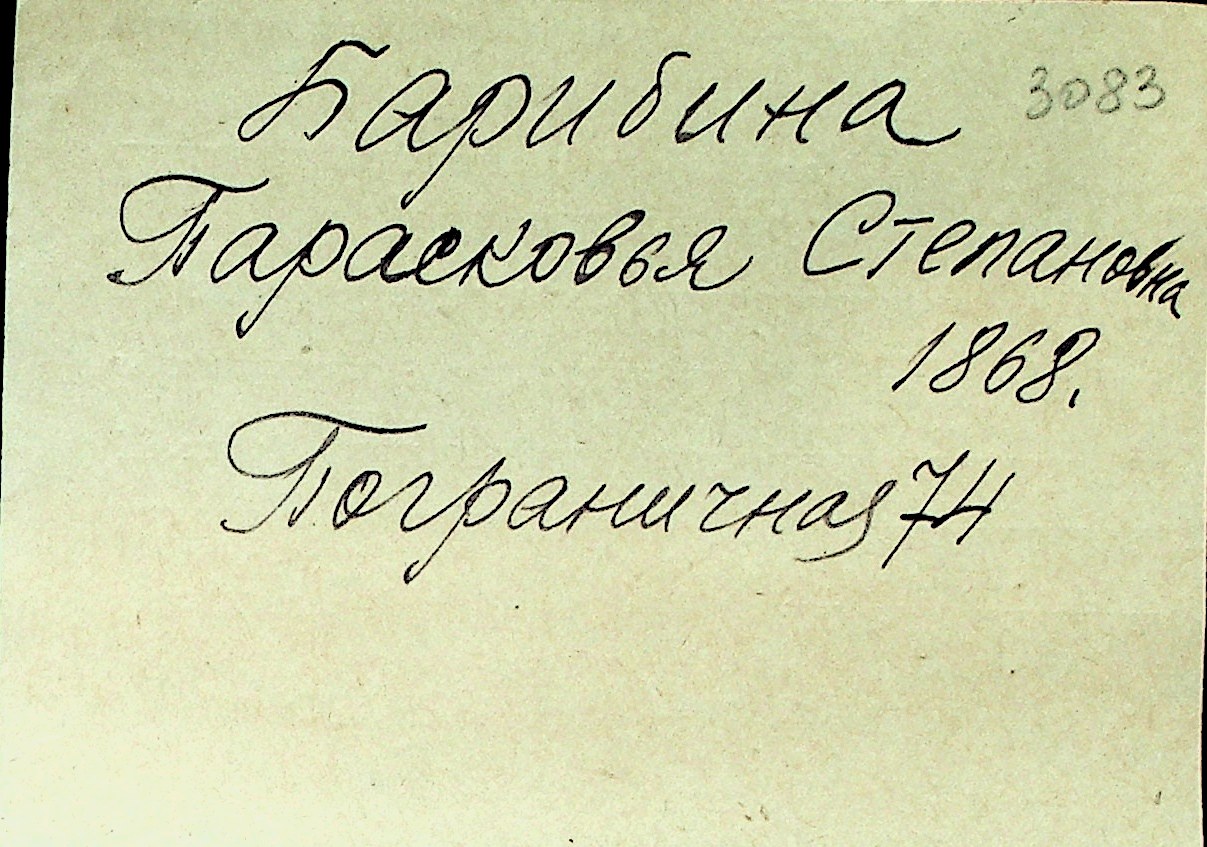 Барибина 3083
Парасковья Степановна
1868.
Пограничная 74